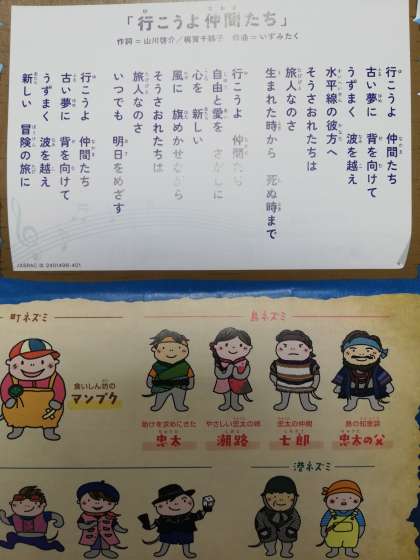 「行こうよ仲間たち」
作詞＝山川啓介／梶賀千鶴子 作曲＝いずみたく
行こうよ 仲間たち
古い夢に 背を向けて
うずまく 波を越え
水平線の彼方へ
そうさおれたちは
旅人なのさ
生まれた時から 死ぬ時まで
行こうよ 仲間たち
自由と愛を さがしに
心を 新しい
風に 旗めかせながら
そうさおれたちは
旅人なのさ
いつでも 明日をめざす
行こうよ 仲間たち
古い夢に 背を向けて
うずまく 波を越え
新しい 冒険の旅に
JASRAC 出 2401498-401
町ネズミ
島ネズミ
食いしん坊の
マンプク
助けを求めにきた
忠太
やさしい忠太の姉
潮路
忠太の仲間
七郎
島の知恵袋
忠太の父
港ネズミ